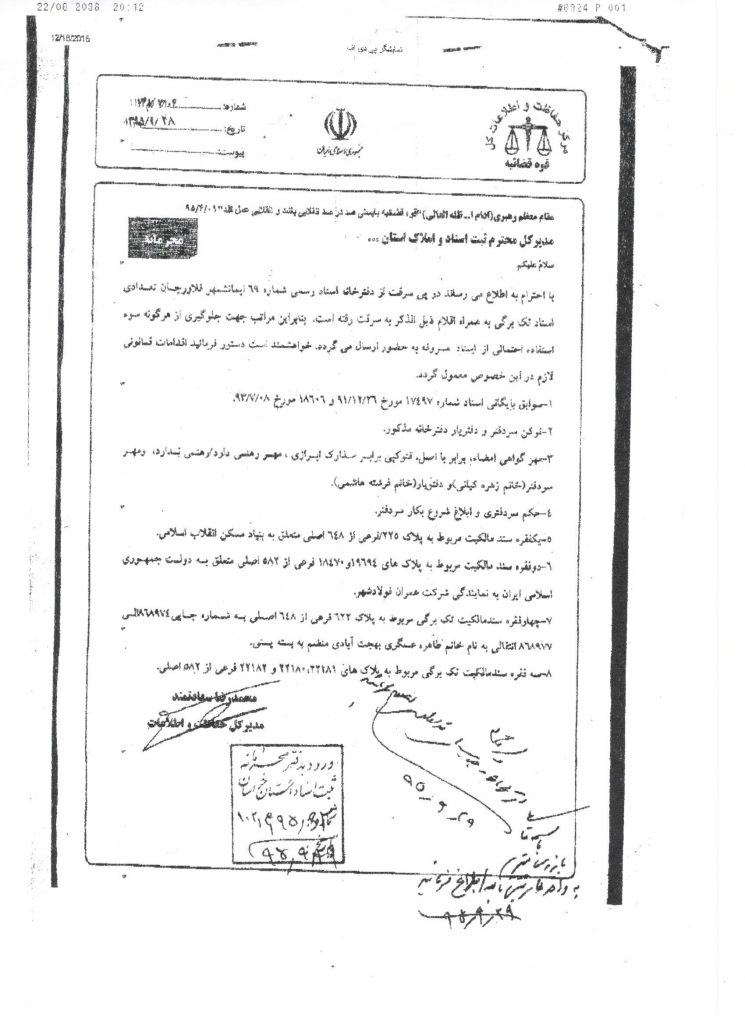 22/08/2038 20:12
#8924 P.001
12/18/2016
نمایشگر پی دی اف
مرکز حفاظت و اطلاعات کل
قوه قضائیه
جمهوری اسلامی ایران
شماره:
تاریخ: ۱۳۹۵/۹/۲۸
پیوست:
مقام معظم رهبری(ادام ا... ظله العالی) "قوه قضائیه بایستی صد در صد انقلابی باشد و انقلابی عمل کند"
محرمانه
مدیر کل محترم ثبت اسناد و املاک استان ...
سلامٌ علیکم
با احترام به اطلاع می رساند در پی سرقت از دفترخانه اسناد رسمی شماره ۶۹ ایمانشهر فلاورجان تعدادی
اسناد تک برگی به همراه اقلام ذیل الذکر به سرقت رفته است. بنابراین مراتب جهت جلوگیری از هرگونه سوء
استفاده احتمالی از اسناد مسروقه به حضور ارسال می گردد. خواهشمند است دستور فرمائید اقدامات قانونی
لازم در این خصوص معمول گردد.
۱-سوابق بایگانی اسناد شماره ۱۷۴۹۷ مورخ ۹۱/۱۲/۲۶ و ۱۸۶۰۶ مورخ ۹۳/۷/۰۸.
۲-توکن سردفتر و دفتریار دفترخانه مذکور.
۳-مهر گواهی امضاء، برابر با اصل، فتوکپی برابر مدارک ابرازی ، مهر رهنی دارد/رهنی ندارد، ومهر
سردفتر(خانم زهره کیانی)و دفتریار(خانم فرشته هاشمی).
۴-حکم سردفتری و ابلاغ شروع بکار سردفتر.
۵-یکفقره سند مالکیت مربوط به پلاک ۲۲۵/فرعی از ۶۴۸ اصلی متعلق به بنیاد مسکن انقلاب اسلامی.
۶-دوفقره سند مالکیت مربوط به پلاک های ۱۹۶۹۴و۱۸۴۷۰ فرعی از ۵۸۲ اصلی متعلق به دولت جمهوری
اسلامی ایران به نمایندگی شرکت عمران فولادشهر.
۷-چهارفقره سندمالکیت تک برگی مربوط به پلاک ۶۲۲ فرعی از ۶۴۸ اصلی به شماره چاپی۸۶۸۹۷۴الی
۸۶۸۹۷۷ انتقالی به نام خانم طاهره عسگری بهجت آبادی منضم به بسته پستی.
۸-سه فقره سندمالکیت تک برگی مربوط به پلاک های ۲۲۱۸۰،۲۲۱۸۱ و ۲۲۱۸۲ فرعی از ۵۸۲ اصلی.
محمدرضا سعادتمند
مدیر کل حفاظت و اطلاعات
ورود به دفتر محرمانه
ثبت اسناد استان خراسان
۹۵-۹-۲۹
۹۵/۹/۲۹